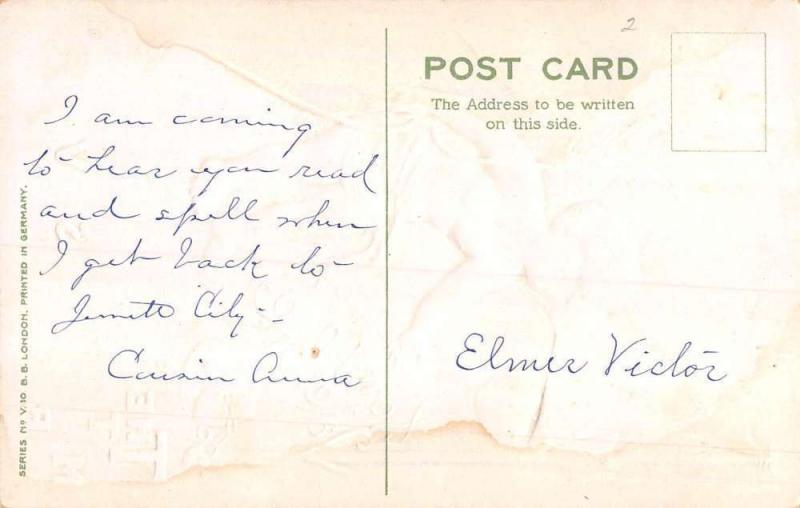 2
POST CARD
The Address to be written
on this side.
I am coming
to hear you read
and spell when
I get back to
City -
Cousin Anna
Elmer Victor
SERIES No V.10 B.B. LONDON. PRINTED IN GERMANY.